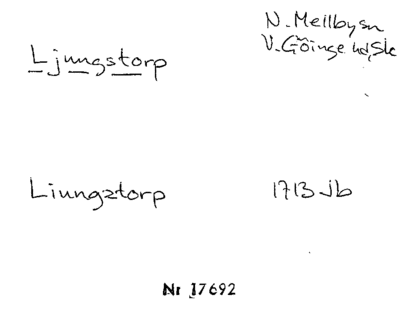 Ljungstorp
N. Mellbysn
V. Göinge hd, Sk
Liungztorp
1713 Jb
Nr 17692